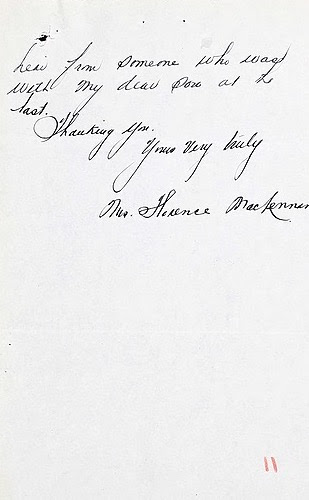 hear from someone who was
with my dear son at the
last.
Thanking you.
Yours Very truly
Mrs. Florence MacKennan
11